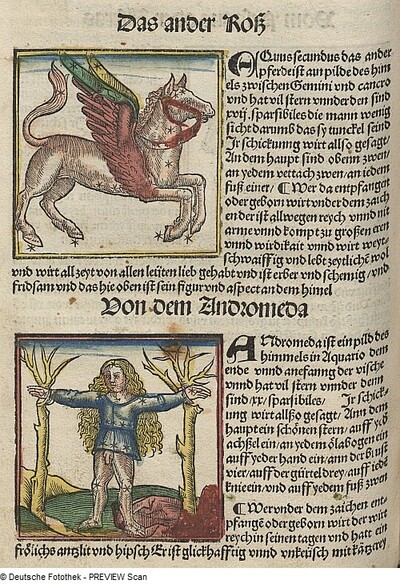 Das ander Roß
AQuus secundus das ander
pferde ist aun pilde des him
els zwischen Gemini vnd cancro
vnd hat vil stern vnnder den sind
xvij. sparsibiles die mann wenig
sicht darumb das sy tunckel seind
Ir schickunng wirt allso gesagt/
An dem haupt sind obenn zwen/
an yedem vettach zwen/an iedem
fuß einer/ Wer da entpfangen
oder geborn wirt vnder dem zaich
en der ist allwegen reych vnnd nit
arme vnnd kompt zu großen eren
vnnd wirdikait vnnd wirt weyt-
schwaiffig vnd lebt zeytliche wol
vnd wirt all zeyt von allen leüten lieb gehabt vnd ist erber vnd schemig/vnd
fridsam vnd das hie oben ist sein figur vnd aspect an dem himel
Von dem Andromeda
ANdromeda ist ein pild des
himmels in Aquario dem
ende vnnd anefanng der vische
vnnd hat vil stern vnnder denn
sind/xx/sparsibiles/ Ir schick-
ung wirt allßo gesagt/Ann dem
haupt ein schönen stern/auff yed
achßel ein/an yedem ölabogen ein
auff yeder hand ein/ann der brust
vier/auff der gürtel drey/auff iedē
knie ein/vnd auff yedem fuß zwen
Wer vnder dem zaichen ent-
pfangē oder geborn wirt der wirt
reych in seinen tagen vnd hatt ein
frölichs antzlit vnd hipsch Er ist glickhafftig vnnd vnkeüsch mit kätzerey
© Deutsche Fotothek - PREVIEW Scan